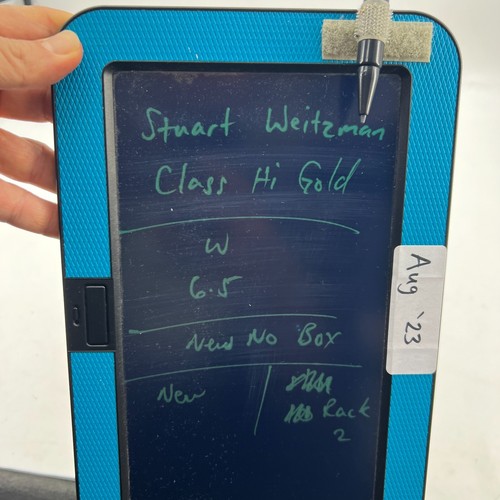 Stuart Weitzman
Class Hi Gold
W
6.5
New No Box
New
Rack
2
Aug '23